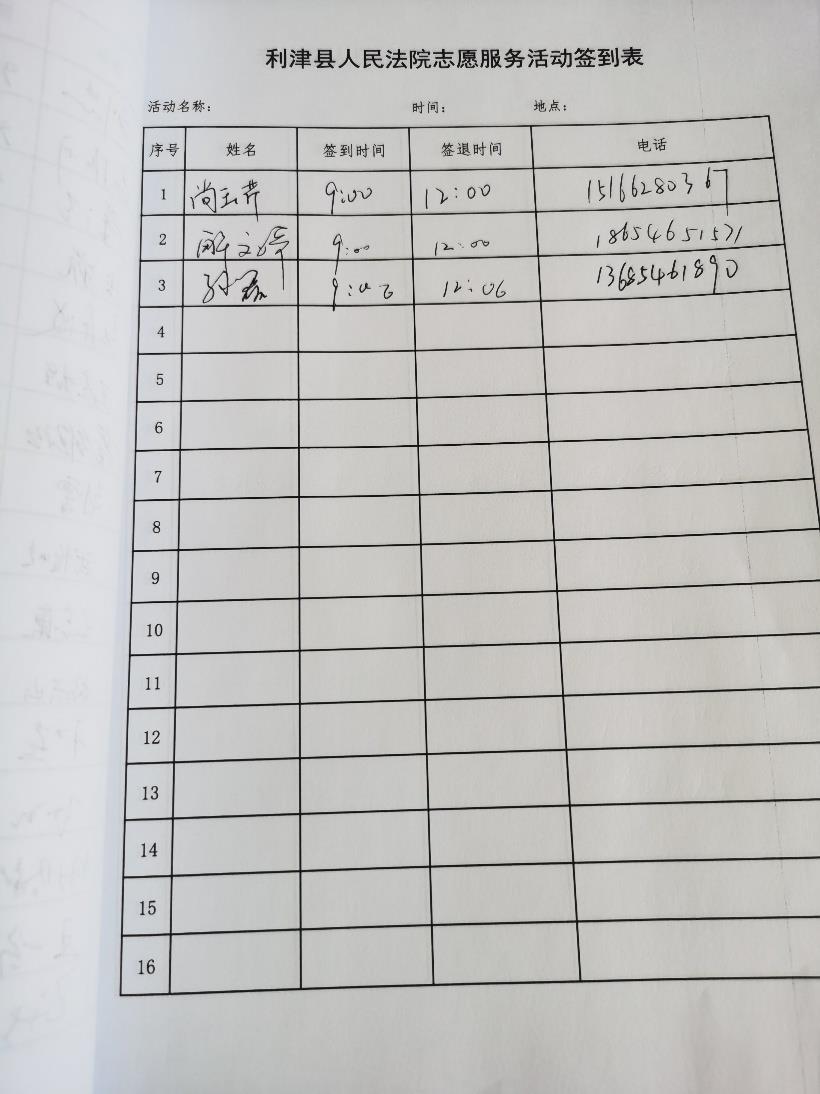 利津县人民法院志愿服务活动签到表
活动名称: 时间: 地点:
序号 姓名 签到时间 签退时间 电话
1 尚玉芹 9:00 12:00 15166280367
2 9:00 12:00 18654651531
3 9:00 12:06 13685461890
4
5
6
7
8
9
10
11
12
13
14
15
16